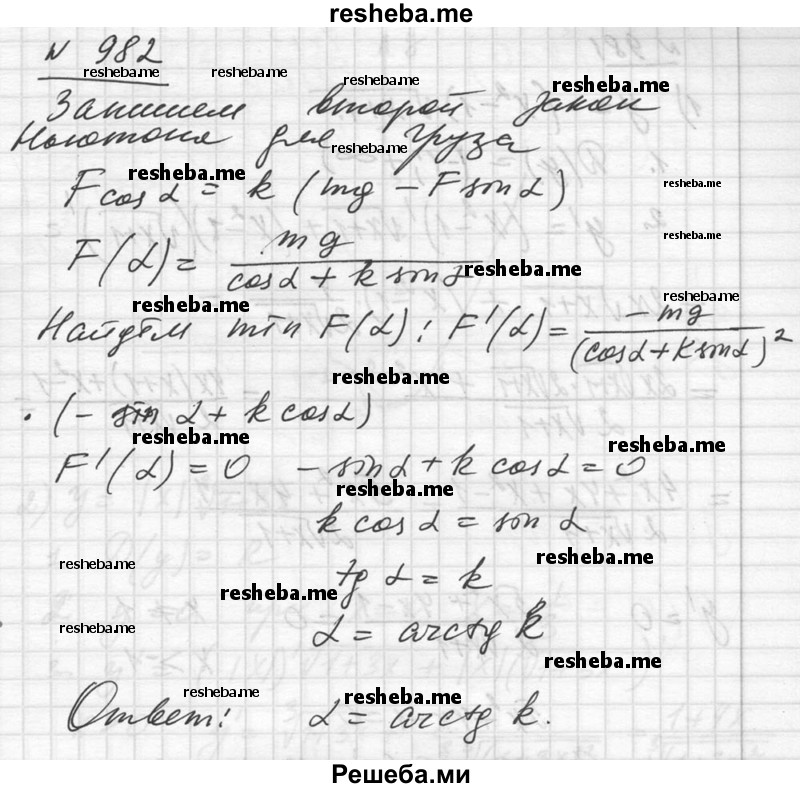 resheba.me
№ 982
resheba.me resheba.me resheba.me resheba.me
Запишем второй закон
Ньютона для груза
resheba.me
resheba.me resheba.me
F cos α = k (mg − F sin α)
resheba.me
F(α) = mg / (cos α + k sin α)
resheba.me
resheba.me resheba.me
Найдём min F(α): F'(α) = −mg / (cos α + k sin α)²
resheba.me
· (− sin α + k cos α)
resheba.me resheba.me
F'(α) = 0 − sin α + k cos α = 0
resheba.me
k cos α = sin α
resheba.me resheba.me
tg α = k
resheba.me
resheba.me
α = arctg k
resheba.me
resheba.me resheba.me
Ответ: α = arctg k.
Решеба.ми